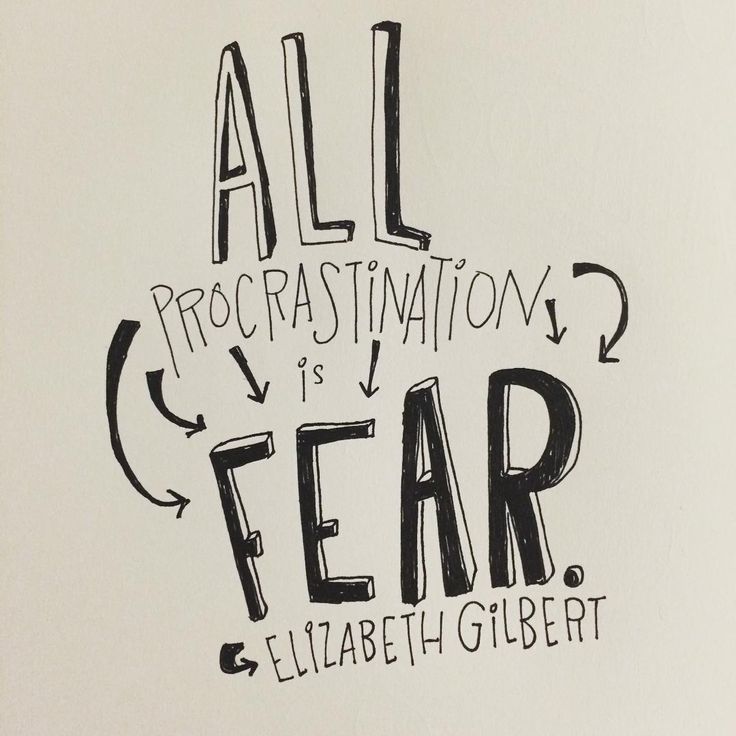 ALL
PROCRASTINATION
is
FEAR.
ELiZABETH GiLBERT